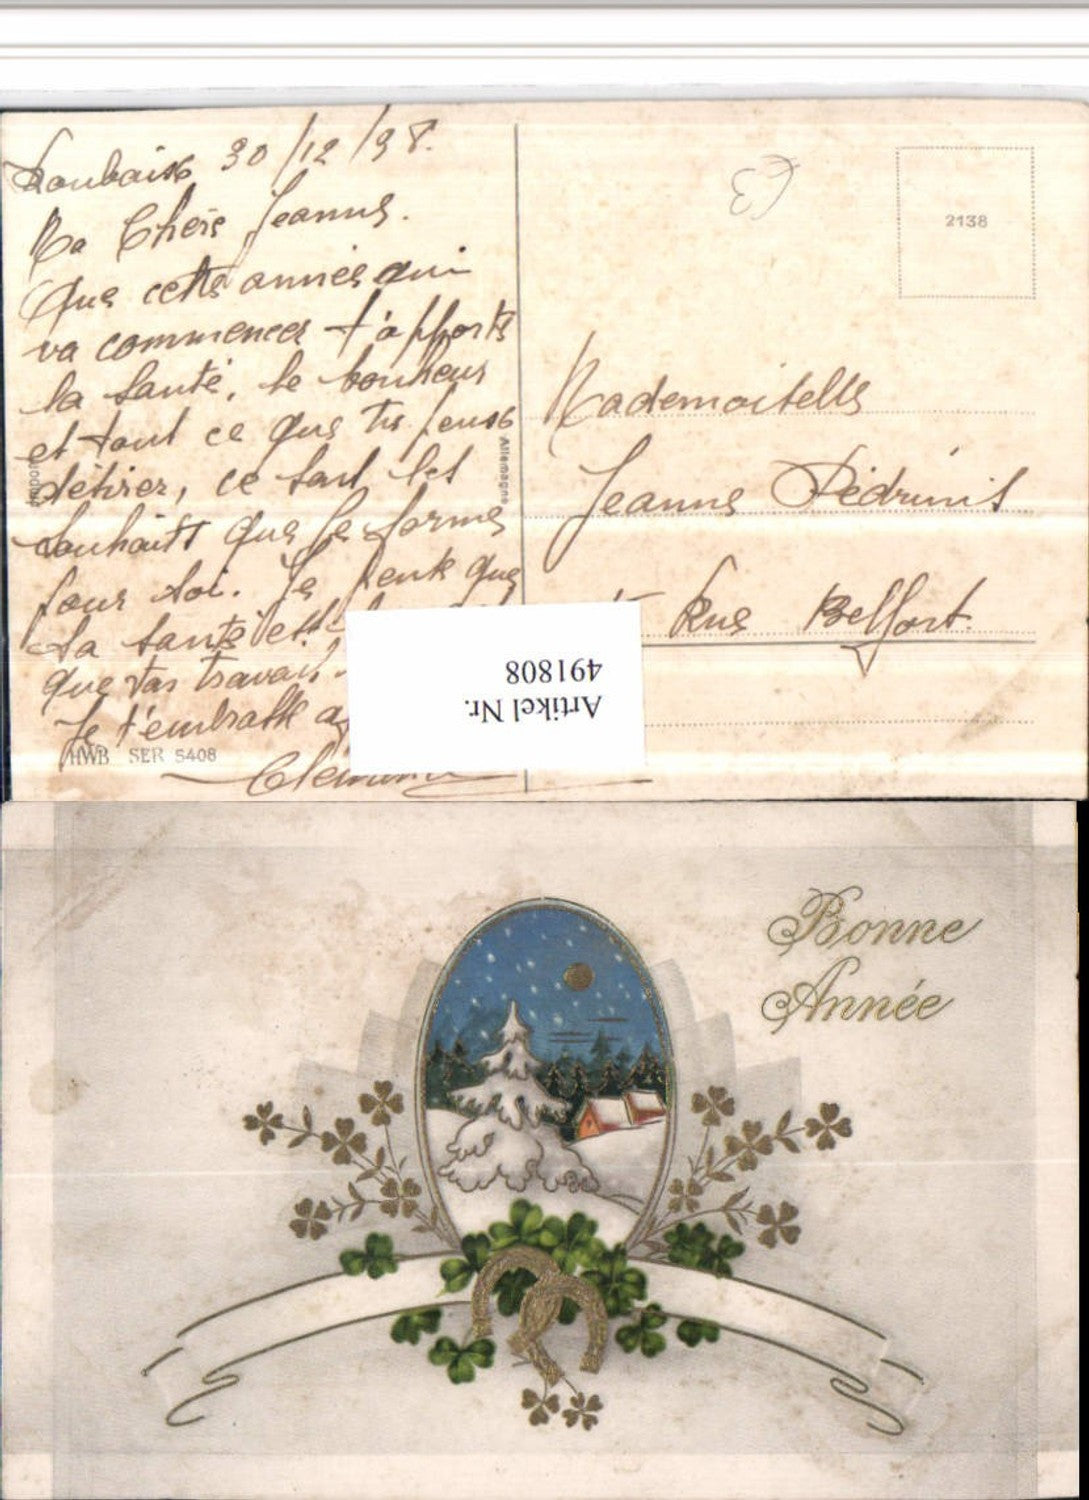 Roubaix 30/12/38.
Ma Chère Jeanne.
Que cette année qui
va commencer t'apporte
la santé, le bonheur
et tout ce que tu peux
désirer, ce sont les
souhaits que je forme
pour toi. Je pense que
ta santé est
que ton travail
Je t'embrasse
HWB SER 5408
Import
Allemagne
2138
Mademoiselle
Jeanne
Rue Belfort.
Artikel Nr.
491808
Bonne
Année